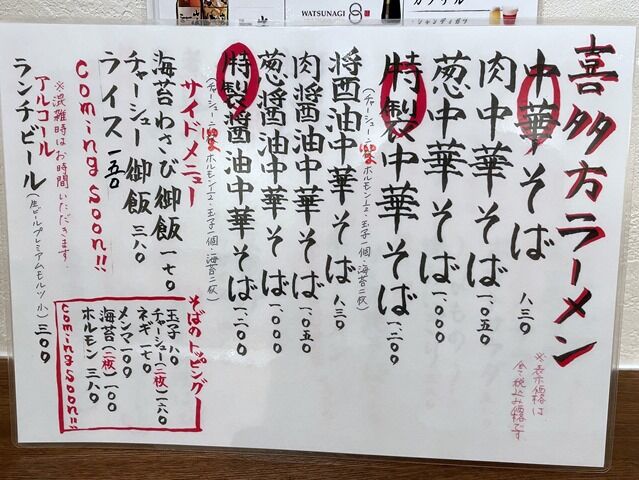 WATSUNAGI
喜多方ラーメン
※表示価格は
全て税込み価格です
中華そば 八三〇
肉中華そば 一、〇五〇
葱中華そば 一、〇〇〇
特製中華そば 一、二〇〇
(チャーシュー、ホルモン1/2・玉子一個・海苔二枚)
醤油中華そば 八三〇
肉醤油中華そば 一、〇五〇
葱醤油中華そば 一、〇〇〇
特製醤油中華そば 一、二〇〇
(チャーシュー、ホルモン1/2・玉子一個・海苔二枚)
サイドメニュー
海苔わさび御飯 一七〇
チャーシュー御飯 三八〇
ライス 一五〇
Coming Soon!!
※混雑時はお時間いただきます。
アルコール
ランチビール (生ビールプレミアムモルツ 小) 三〇〇
そばのトッピング
玉子 八〇
チャーシュー(二枚) 一六〇
ネギ 一七〇
メンマ 一〇〇
海苔(二枚) 一〇〇
ホルモン 三八〇
Coming Soon!!